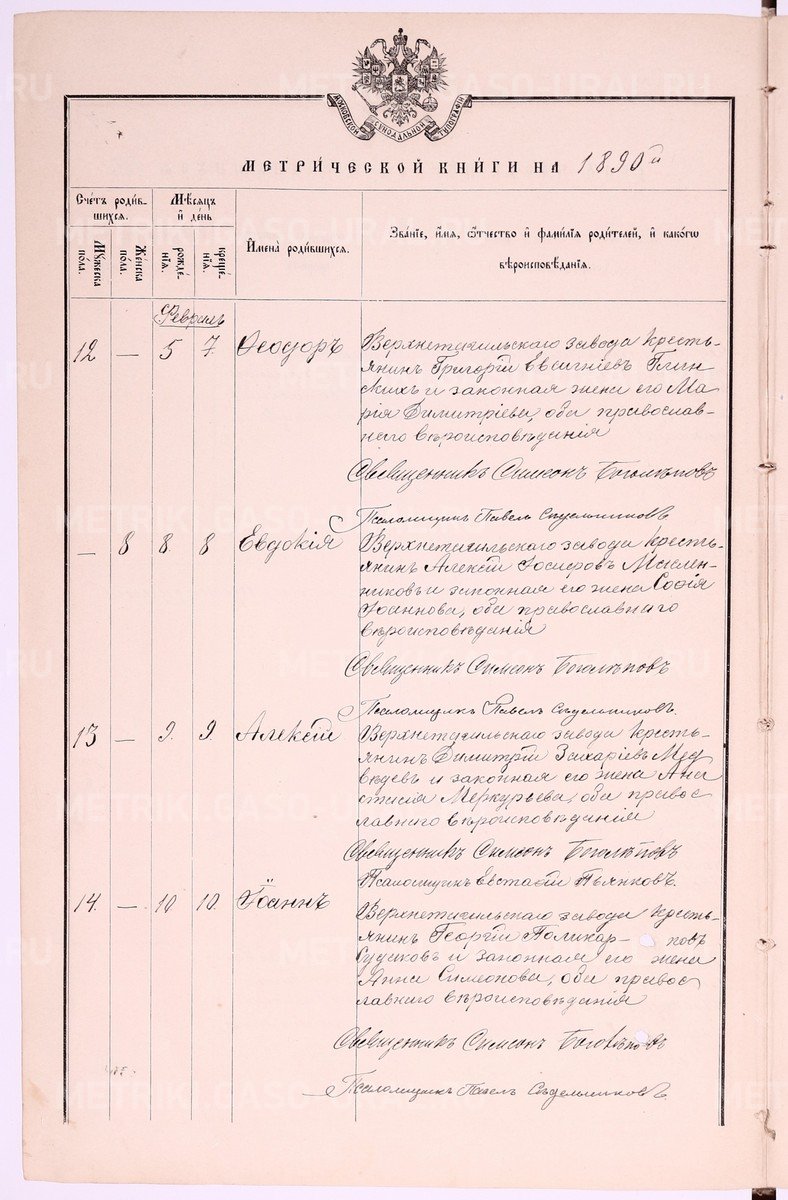 МОСКОВСКОЙ СѴНОДАЛЬНОЙ ТИПОГРАФІИ
МЕТРИ́ЧЕСКОЙ КНИ́ГИ НА 1890й
Сче́тъ роди́в-
шихся.
Мѣ́сяцъ
и҆ де́нь
И҆мена̀ роди́вшихся.
Зва́нїе, и҆́мя, ѻ҆́тчество и҆ фами́лїя роди́телей, и҆ како́гѡ
вѣроисповѣ́данїя.
Мꙋ́жеска
по́ла.
Же́нска
по́ла.
рожде́-
нїя.
креще́-
нїя.
Февраль
12 — 5 7 Ѳеодоръ Верхнетагильскаго завода кресть-
янинъ Григорій Евсигніевъ Глин
скихъ и законная жена его Ма
рія Димитріева, оба православ-
наго вѣроисповѣданія
Священникъ Симеонъ Боголѣповъ
Псаломщикъ Павелъ Сѣдельниковъ
— 8 8. 8 Евдокія Верхнетагильскаго завода кресть-
янинъ Алексій Іосифовъ Маслен-
никовъ и законная его жена Софія
Іоаннова, оба православнаго
вѣроисповѣданія
Священникъ Симеонъ Боголѣповъ
Псаломщикъ Павелъ Сѣдельниковъ.
13 — 9. 9. Алексій Верхнетагильскаго завода кресть-
янинъ Димитрій Захаріевъ Мед
вѣдевъ и законная его жена Ана
стасія Меркурьева, оба правос
лавнаго вѣроисповѣданія
Священникъ Симеонъ Боголѣповъ
Псаломщикъ Евстафій Пьянковъ.
14. — 10 10. Іоаннъ Верхнетагильскаго завода кресть-
янинъ Георгій Поликар- повъ
Судаковъ и законная его жена
Анна Симеонова, оба правос
лавнаго вѣроисповѣданія
Священникъ Симеонъ Боголѣповъ
Псаломщикъ Павелъ Сѣдельниковъ.